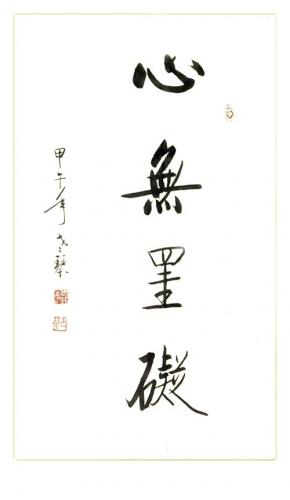 心無罣礙
甲午年